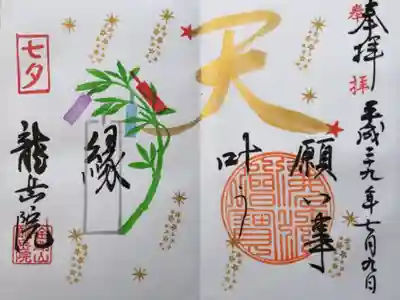 奉拝
奉
拝
平成二九年七月九日
天
願い事
叶う
七夕
縁
龍岳院